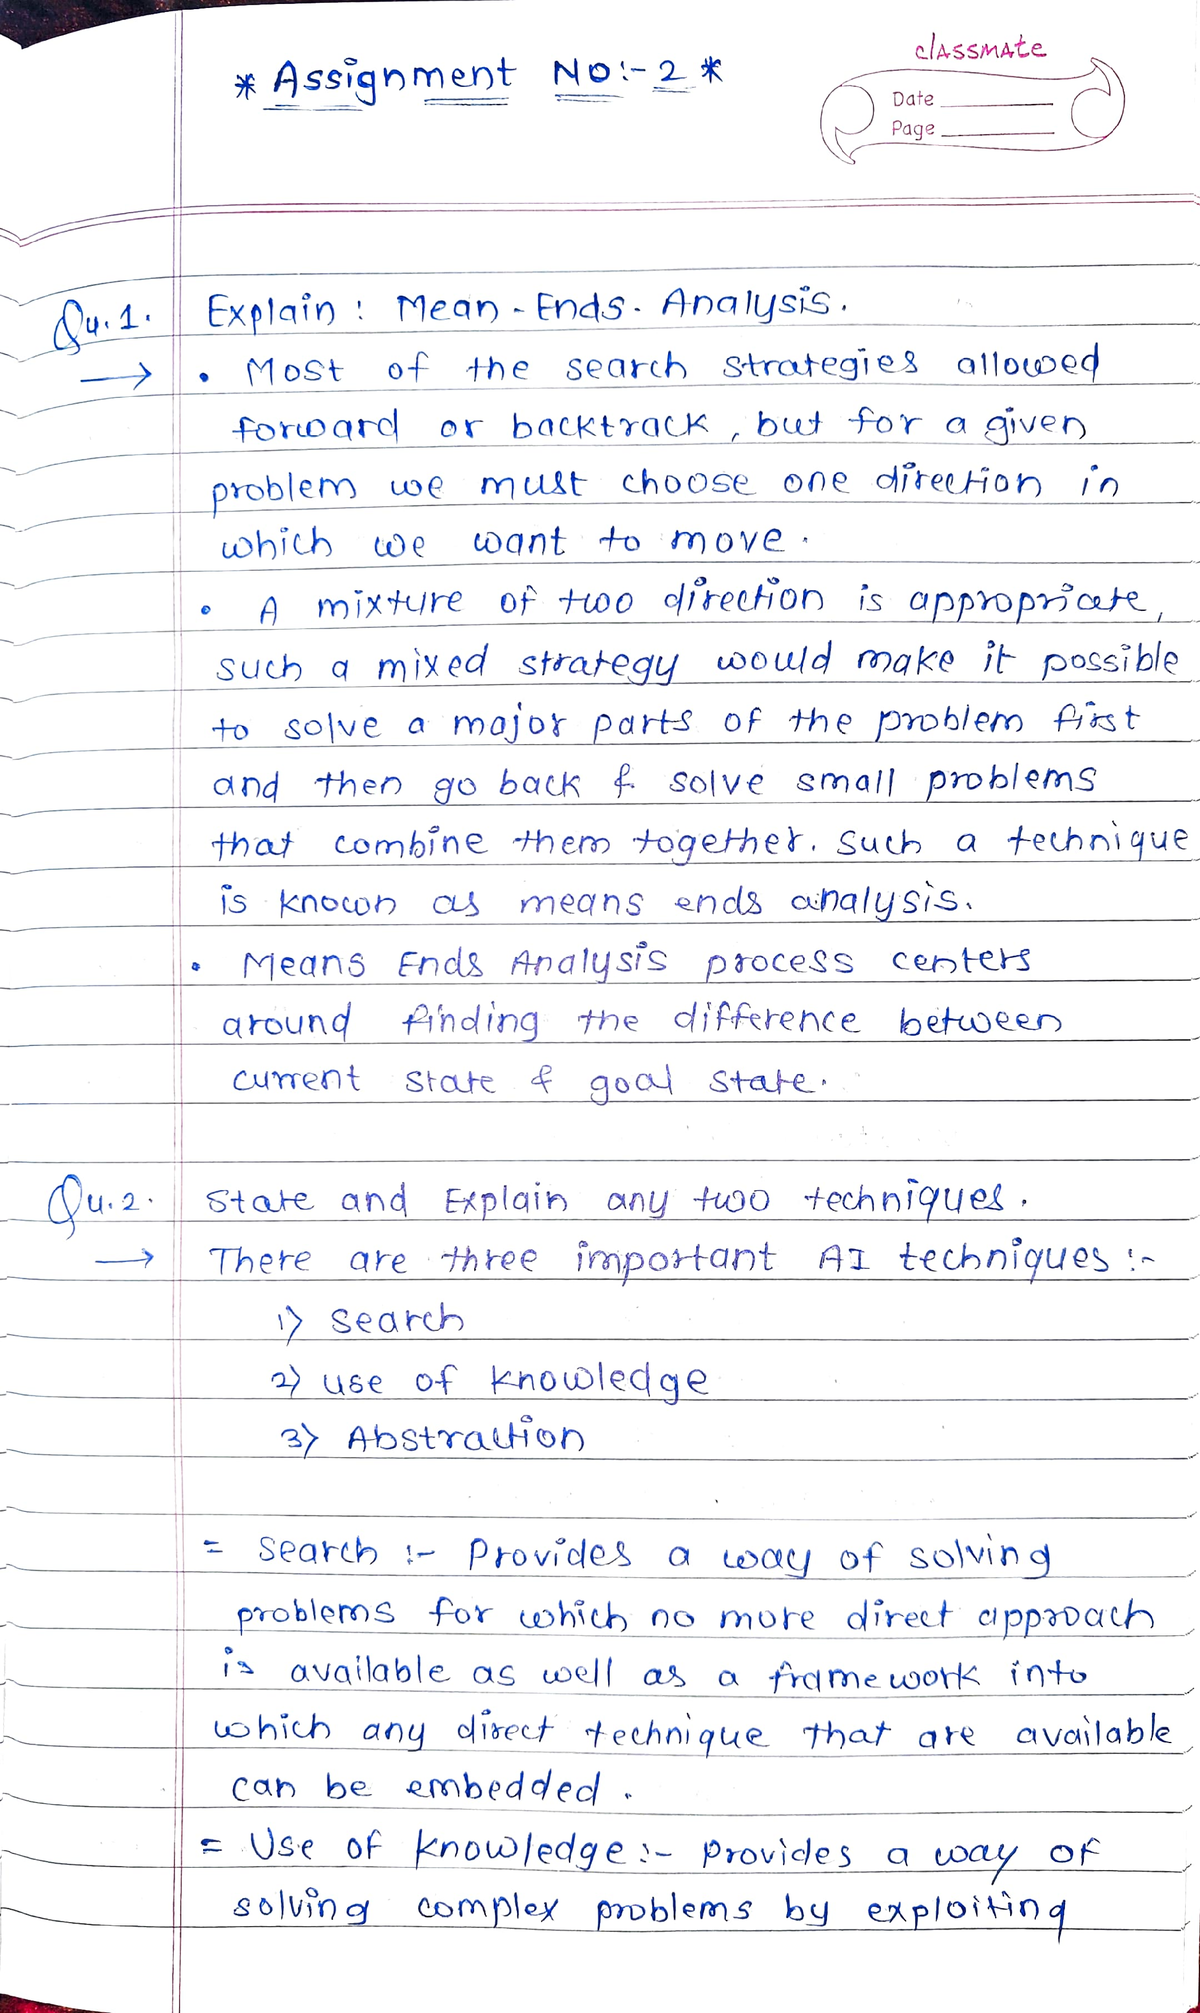 * Assignment NO:- 2 *
classmate
Date
Page
Qu.1. Explain : Mean - Ends - Analysis.
→ • Most of the search strategies allowed
forward or backtrack, but for a given
problem we must choose one direction in
which we want to move.
• A mixture of two direction is appropricate,
such a mixed strategy would make it possible
to solve a major parts of the problem first
and then go back & solve small problems
that combine them together. Such a technique
is known as means ends analysis.
• Means Ends Analysis process centers
around finding the difference between
current state & goal state.
Qu.2. State and Explain any two techniques.
→ There are three important AI techniques :-
1) search
2) use of knowledge
3) Abstraction
= Search :- Provides a way of solving
problems for which no more direct approach
is available as well as a framework into
which any direct technique that are available
can be embedded.
= Use of knowledge :- Provides a way of
solving complex problems by exploiting